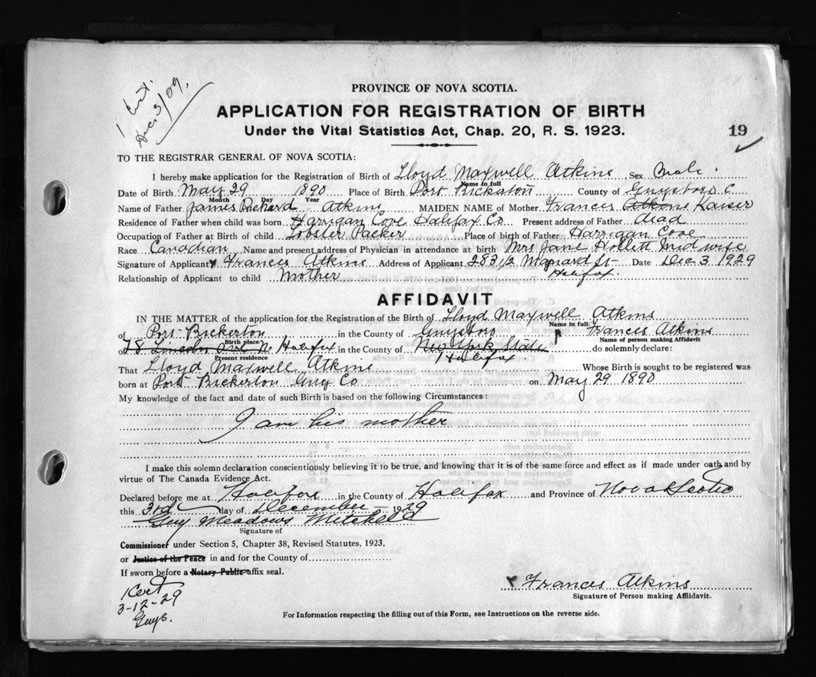 1 Cert.
Dec. 3/09.
PROVINCE OF NOVA SCOTIA.
APPLICATION FOR REGISTRATION OF BIRTH
Under the Vital Statistics Act, Chap. 20, R. S. 1923.
19
TO THE REGISTRAR GENERAL OF NOVA SCOTIA:
I hereby make application for the Registration of Birth of Lloyd Maxwell Atkins Sex Male
Name in full
Date of Birth May 29 1890 Place of Birth Port Bickerton County of Guysboro C
Month Day Year
Name of Father James Richard Atkins MAIDEN NAME of Mother Frances Atkins Kaiser
Residence of Father when child was born Harrigan Cove Halifax Co Present address of Father dead
Occupation of Father at Birth of child Lobster Packer Place of birth of Father Harrigan Cove
Race Canadian Name and present address of Physician in attendance at birth Mrs Jane Hollett Midwife
Signature of Applicant x Frances Atkins Address of Applicant 283 1/2 Maynard St Date Dec 3 1929
Halifax.
Relationship of Applicant to child Mother
AFFIDAVIT
IN THE MATTER of the application for the Registration of the Birth of Lloyd Maxwell Atkins
Name in full
of Port Bickerton in the County of Guysboro Frances Atkins
Birth place Name of person making Affidavit
of 78 Lincoln Ave N Halifax in the County of New York State do solemnly declare:
Present residence Halifax
That Lloyd Maxwell Atkins Whose Birth is sought to be registered was
born at Port Bickerton Guys Co on May 29 1890
My knowledge of the fact and date of such Birth is based on the following Circumstances:
I am his mother
I make this solemn declaration conscientiously believing it to be true, and knowing that it is of the same force and effect as if made under oath and by
virtue of The Canada Evidence Act.
Declared before me at Halifax in the County of Halifax and Province of Nova Scotia
this 3rd day of December 1929
Guy Meadows Mitchell
Signature of
Commissioner under Section 5, Chapter 38, Revised Statutes, 1923,
or Justice of the Peace in and for the County of
If sworn before a Notary Public affix seal.
x Frances Atkins
Signature of Person making Affidavit.
3-12-29
Guys.
For Information respecting the filling out of this Form, see Instructions on the reverse side.